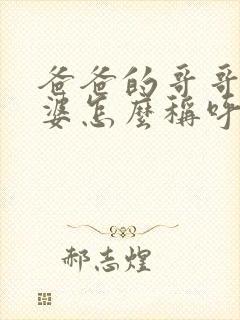 爸爸的哥哥
婆怎麼稱呼
郝志煌